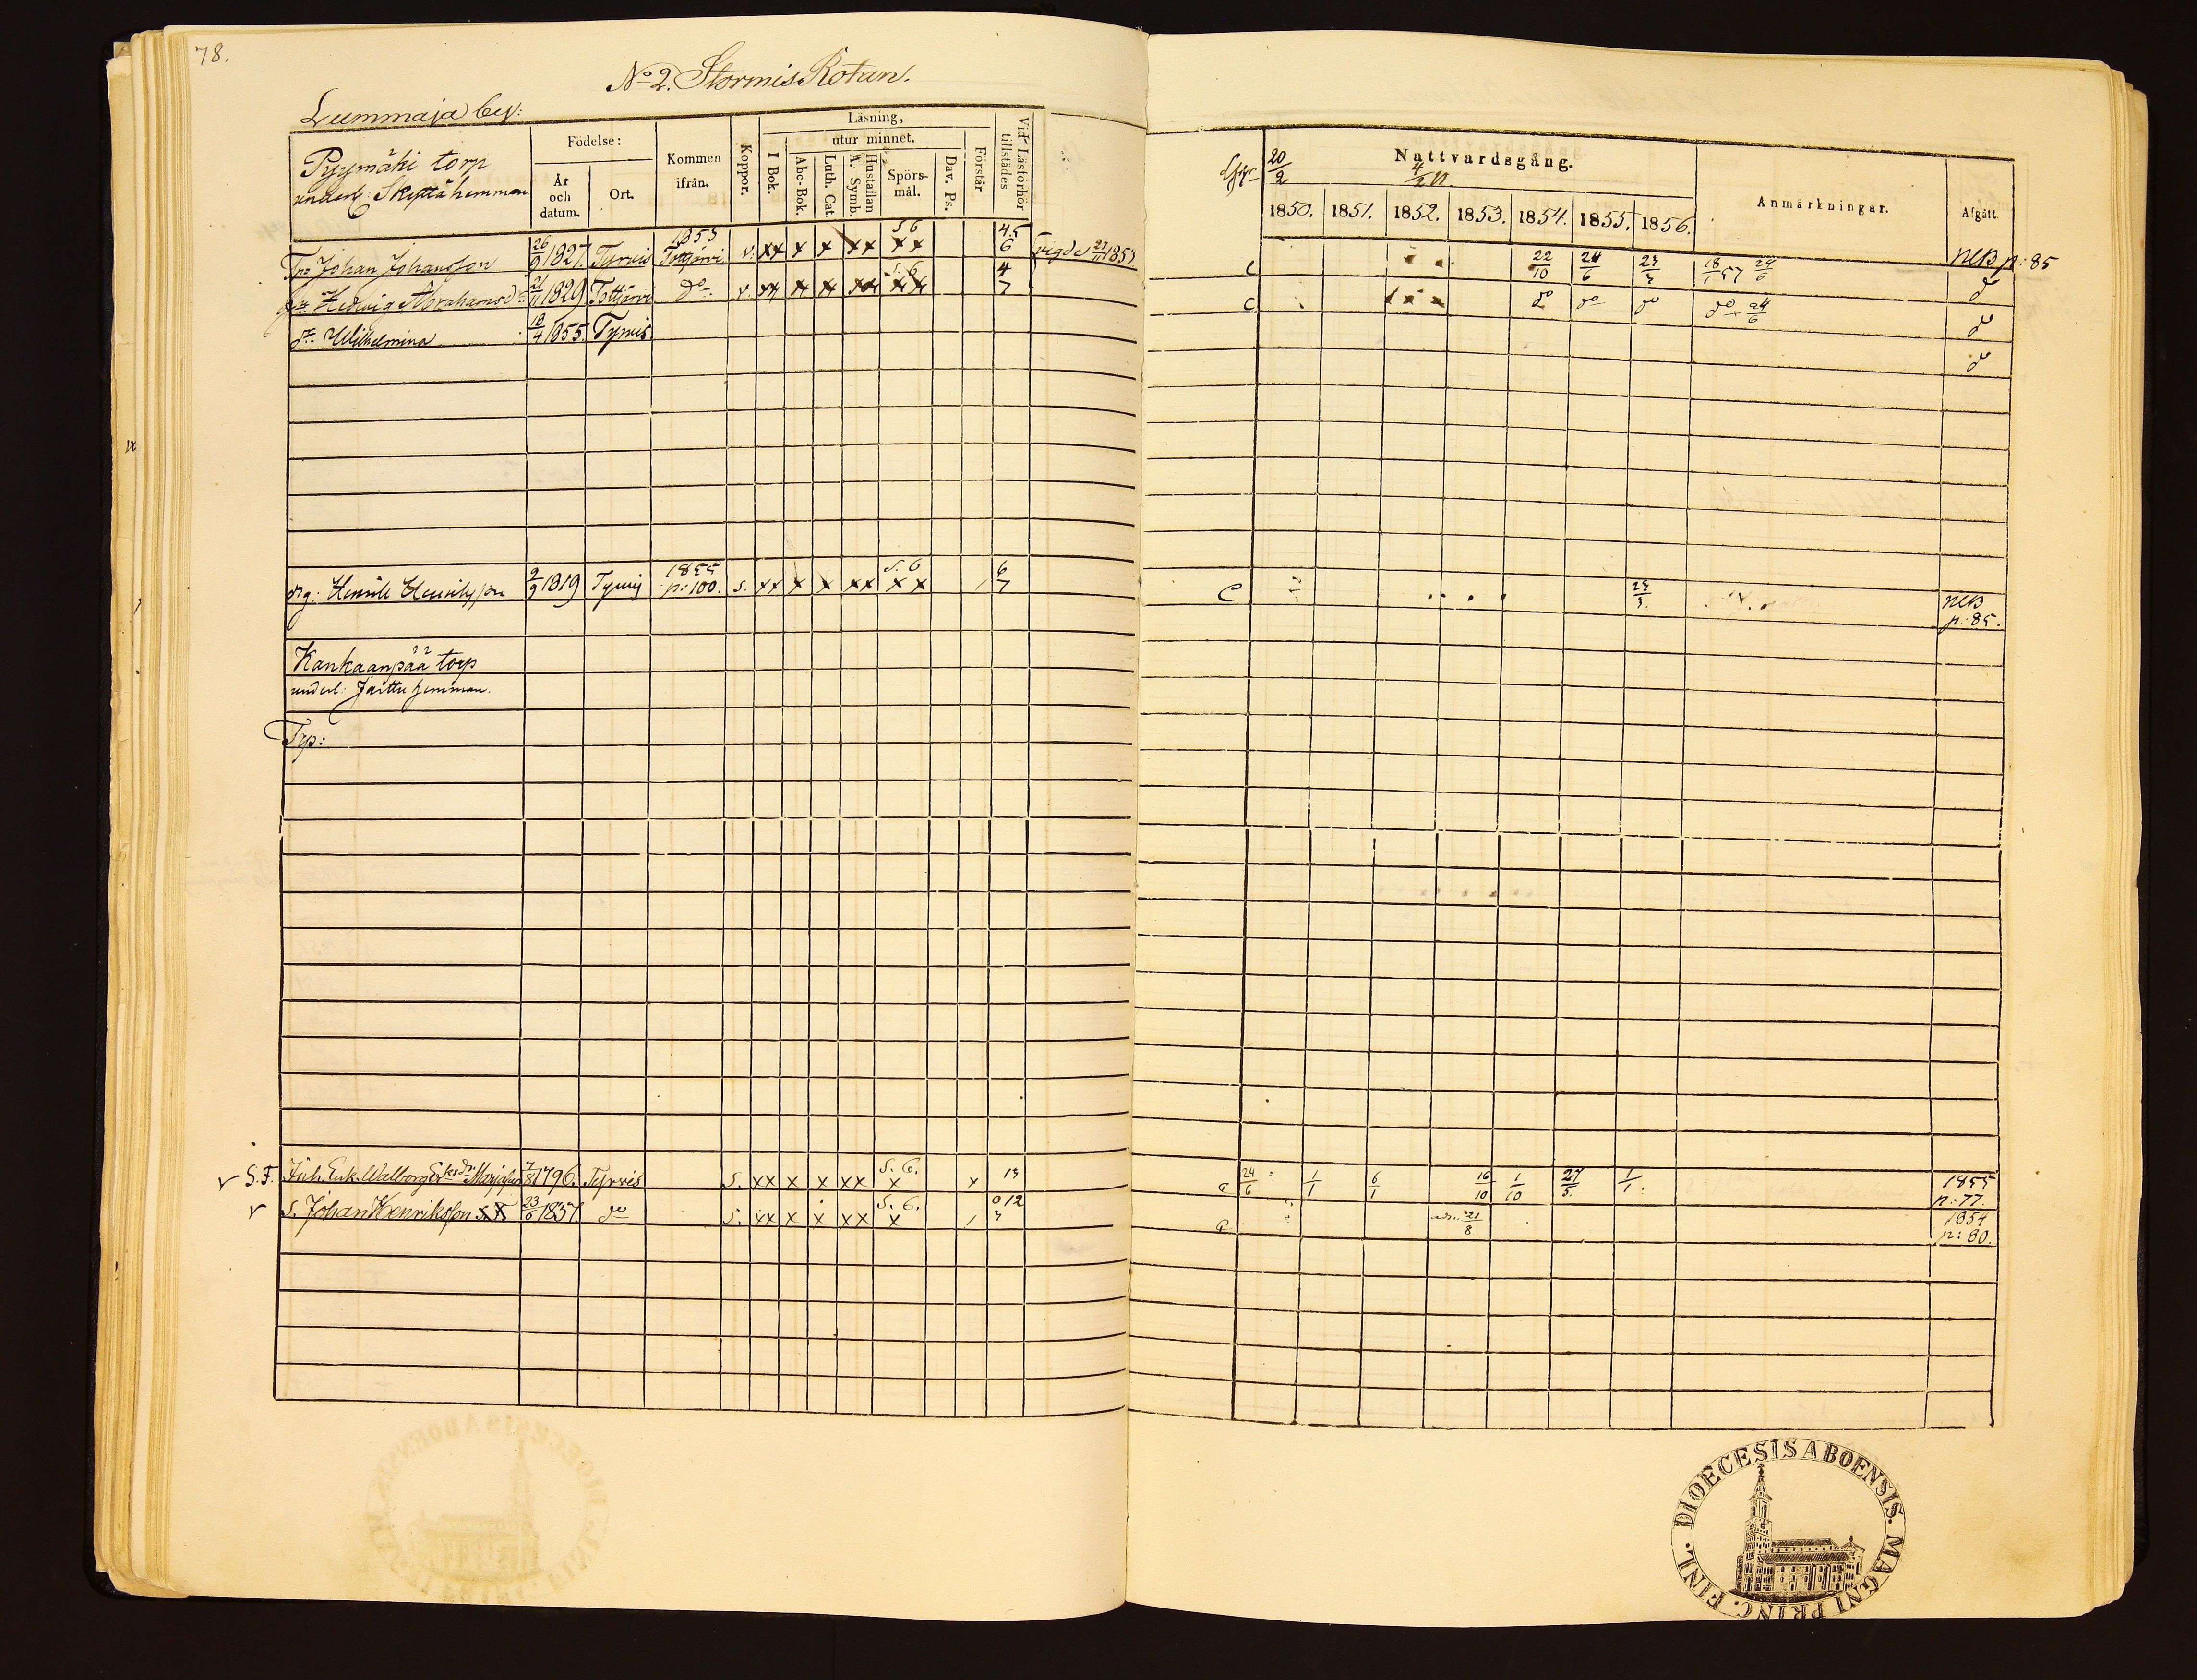 78.
No 2. Stormis Rotan.
Lummaja by:
Pyymäki torp
underl: Skyttä hemman
Födelse:
År och datum.
Ort.
Kommen ifrån.
Koppor.
Läsning,
I Bok.
utur minnet.
Abc-Bok.
Luth. Cat.
Hustaflan A. Symb.
Spörsmål.
Dav. Ps.
Förstår.
Vid Läsförhör tillstädes
20/2
Nattvardsgång.
4/2
1850. 1851. 1852. 1853. 1854. 1855. 1856.
Anmärkningar.
Afgått.
Tp: Johan Johansson 26/9 1827. Tyrvis 1853 Tottijärvi v. xx x x xx S 6 xx 45 6 vigde 27/11 1853 C 22/10 24/6 23/3 18/1 57 24/6 NKB p: 85
Hedvig Abrahamsdr 21/11 1829 Tottijärvi do v. xx x x xx S. 6 xx 4 7 C do do do do 24/6 do
dr. Wilhelmina 18/4 1855. Tyrvis do
do
Henrik Henriksson 9/9 1819 Tyrvis 1855 p: 100. s. xx x x xx S. 6 xx / 6 7 C 23/3. NKB p: 85.
Kankaanpää torp
underl: Jaittu hemman.
Tp:
v S.F. Inh. Enk. Walborg Eriksdr 7/8 1796. Tyrvis S. xx x x xx S. 6. x x 13 a 24/6 1/1 6/1 16/10 1/10 27/5. 1/1. 1855 p: 77.
v S. Johan Henriksson 23/6 1837 do S. xx x x xx S. 6. x / 0 12 3 a 21/8 1854 p: 80.
DIOECESIS ABOENSIS. MAGNI PRINC. FINL.